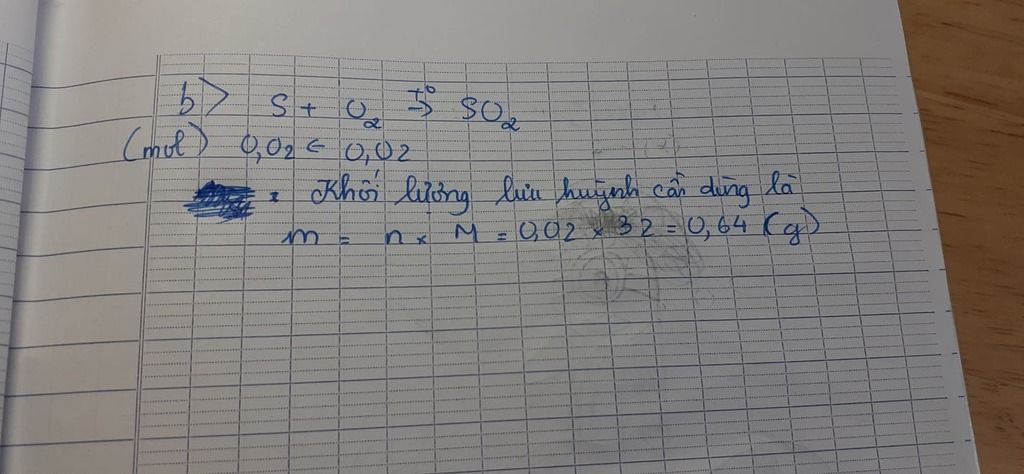 b> S + O₂ t°→ SO₂
(mol) 0,02 ← 0,02
: Khối lượng lưu huỳnh cần dùng là
m = n × M = 0,02 × 32 = 0,64 (g)